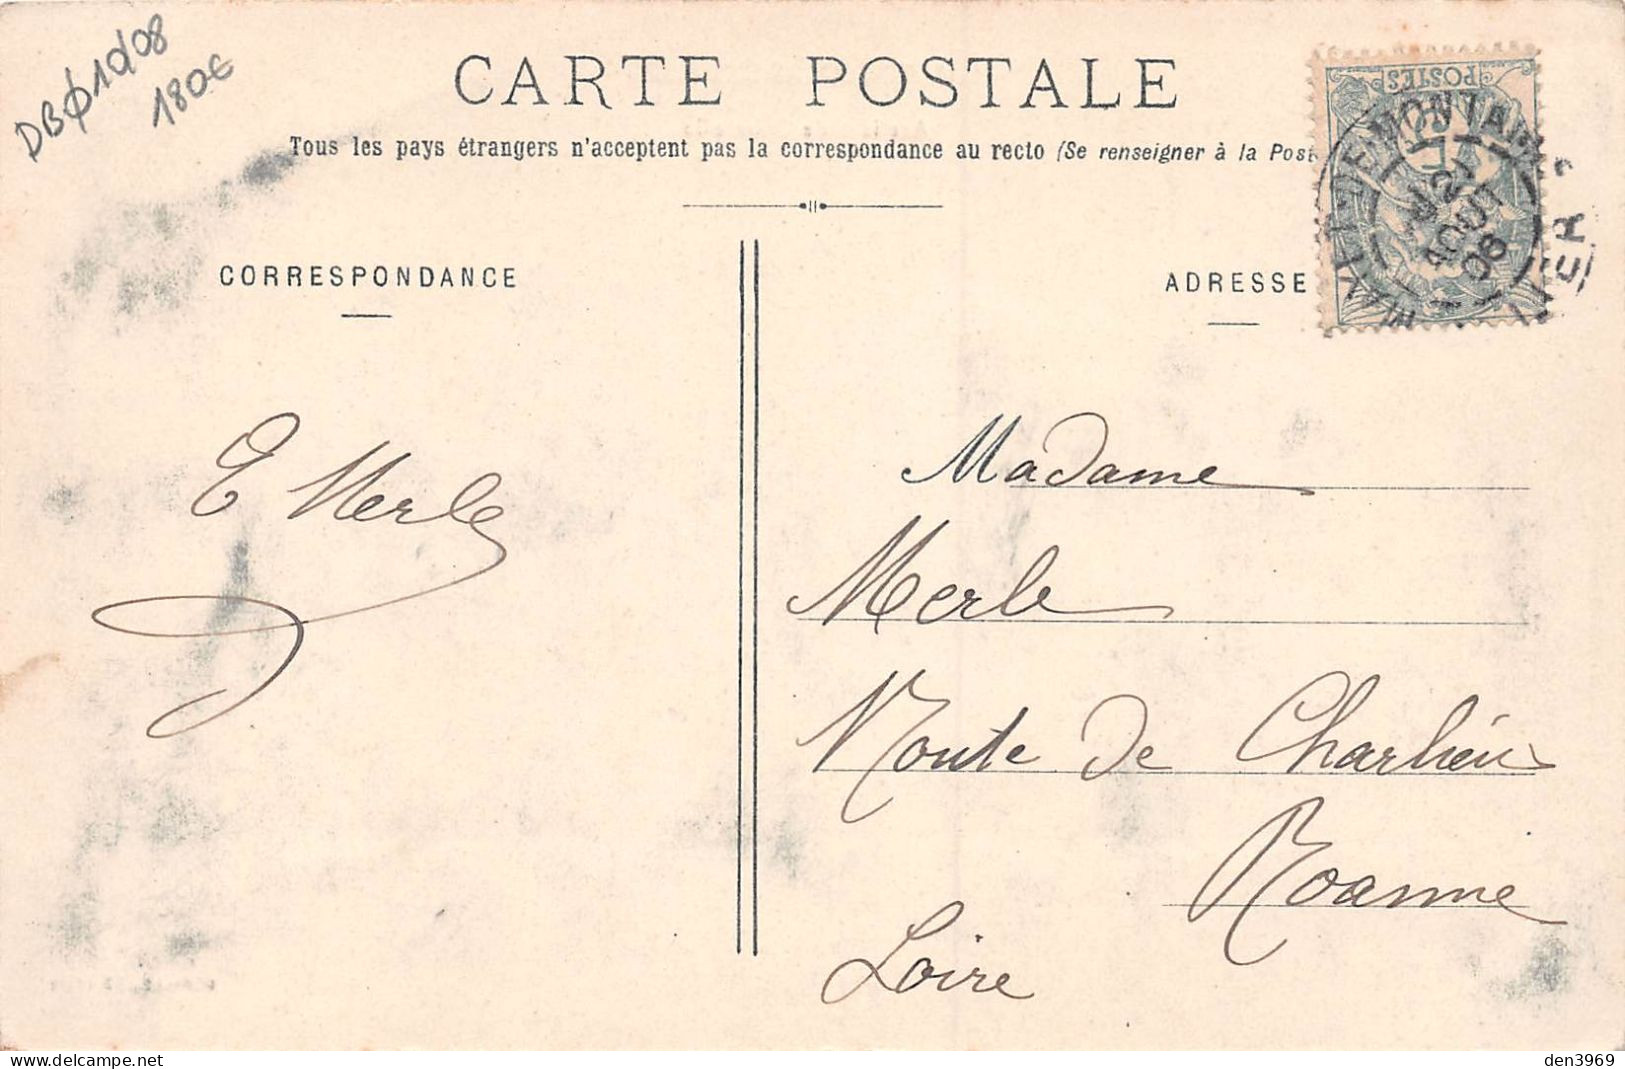 DBØ10/08
180€
CARTE POSTALE
Tous les pays étrangers n'acceptent pas la correspondance au recto (Se renseigner à la Post
POSTES
21
AOUT
08
CORRESPONDANCE
ADRESSE
E Merle
Madame
Merle
Route de Charlieu
Roanne
Loire
delcampe.net
den3969